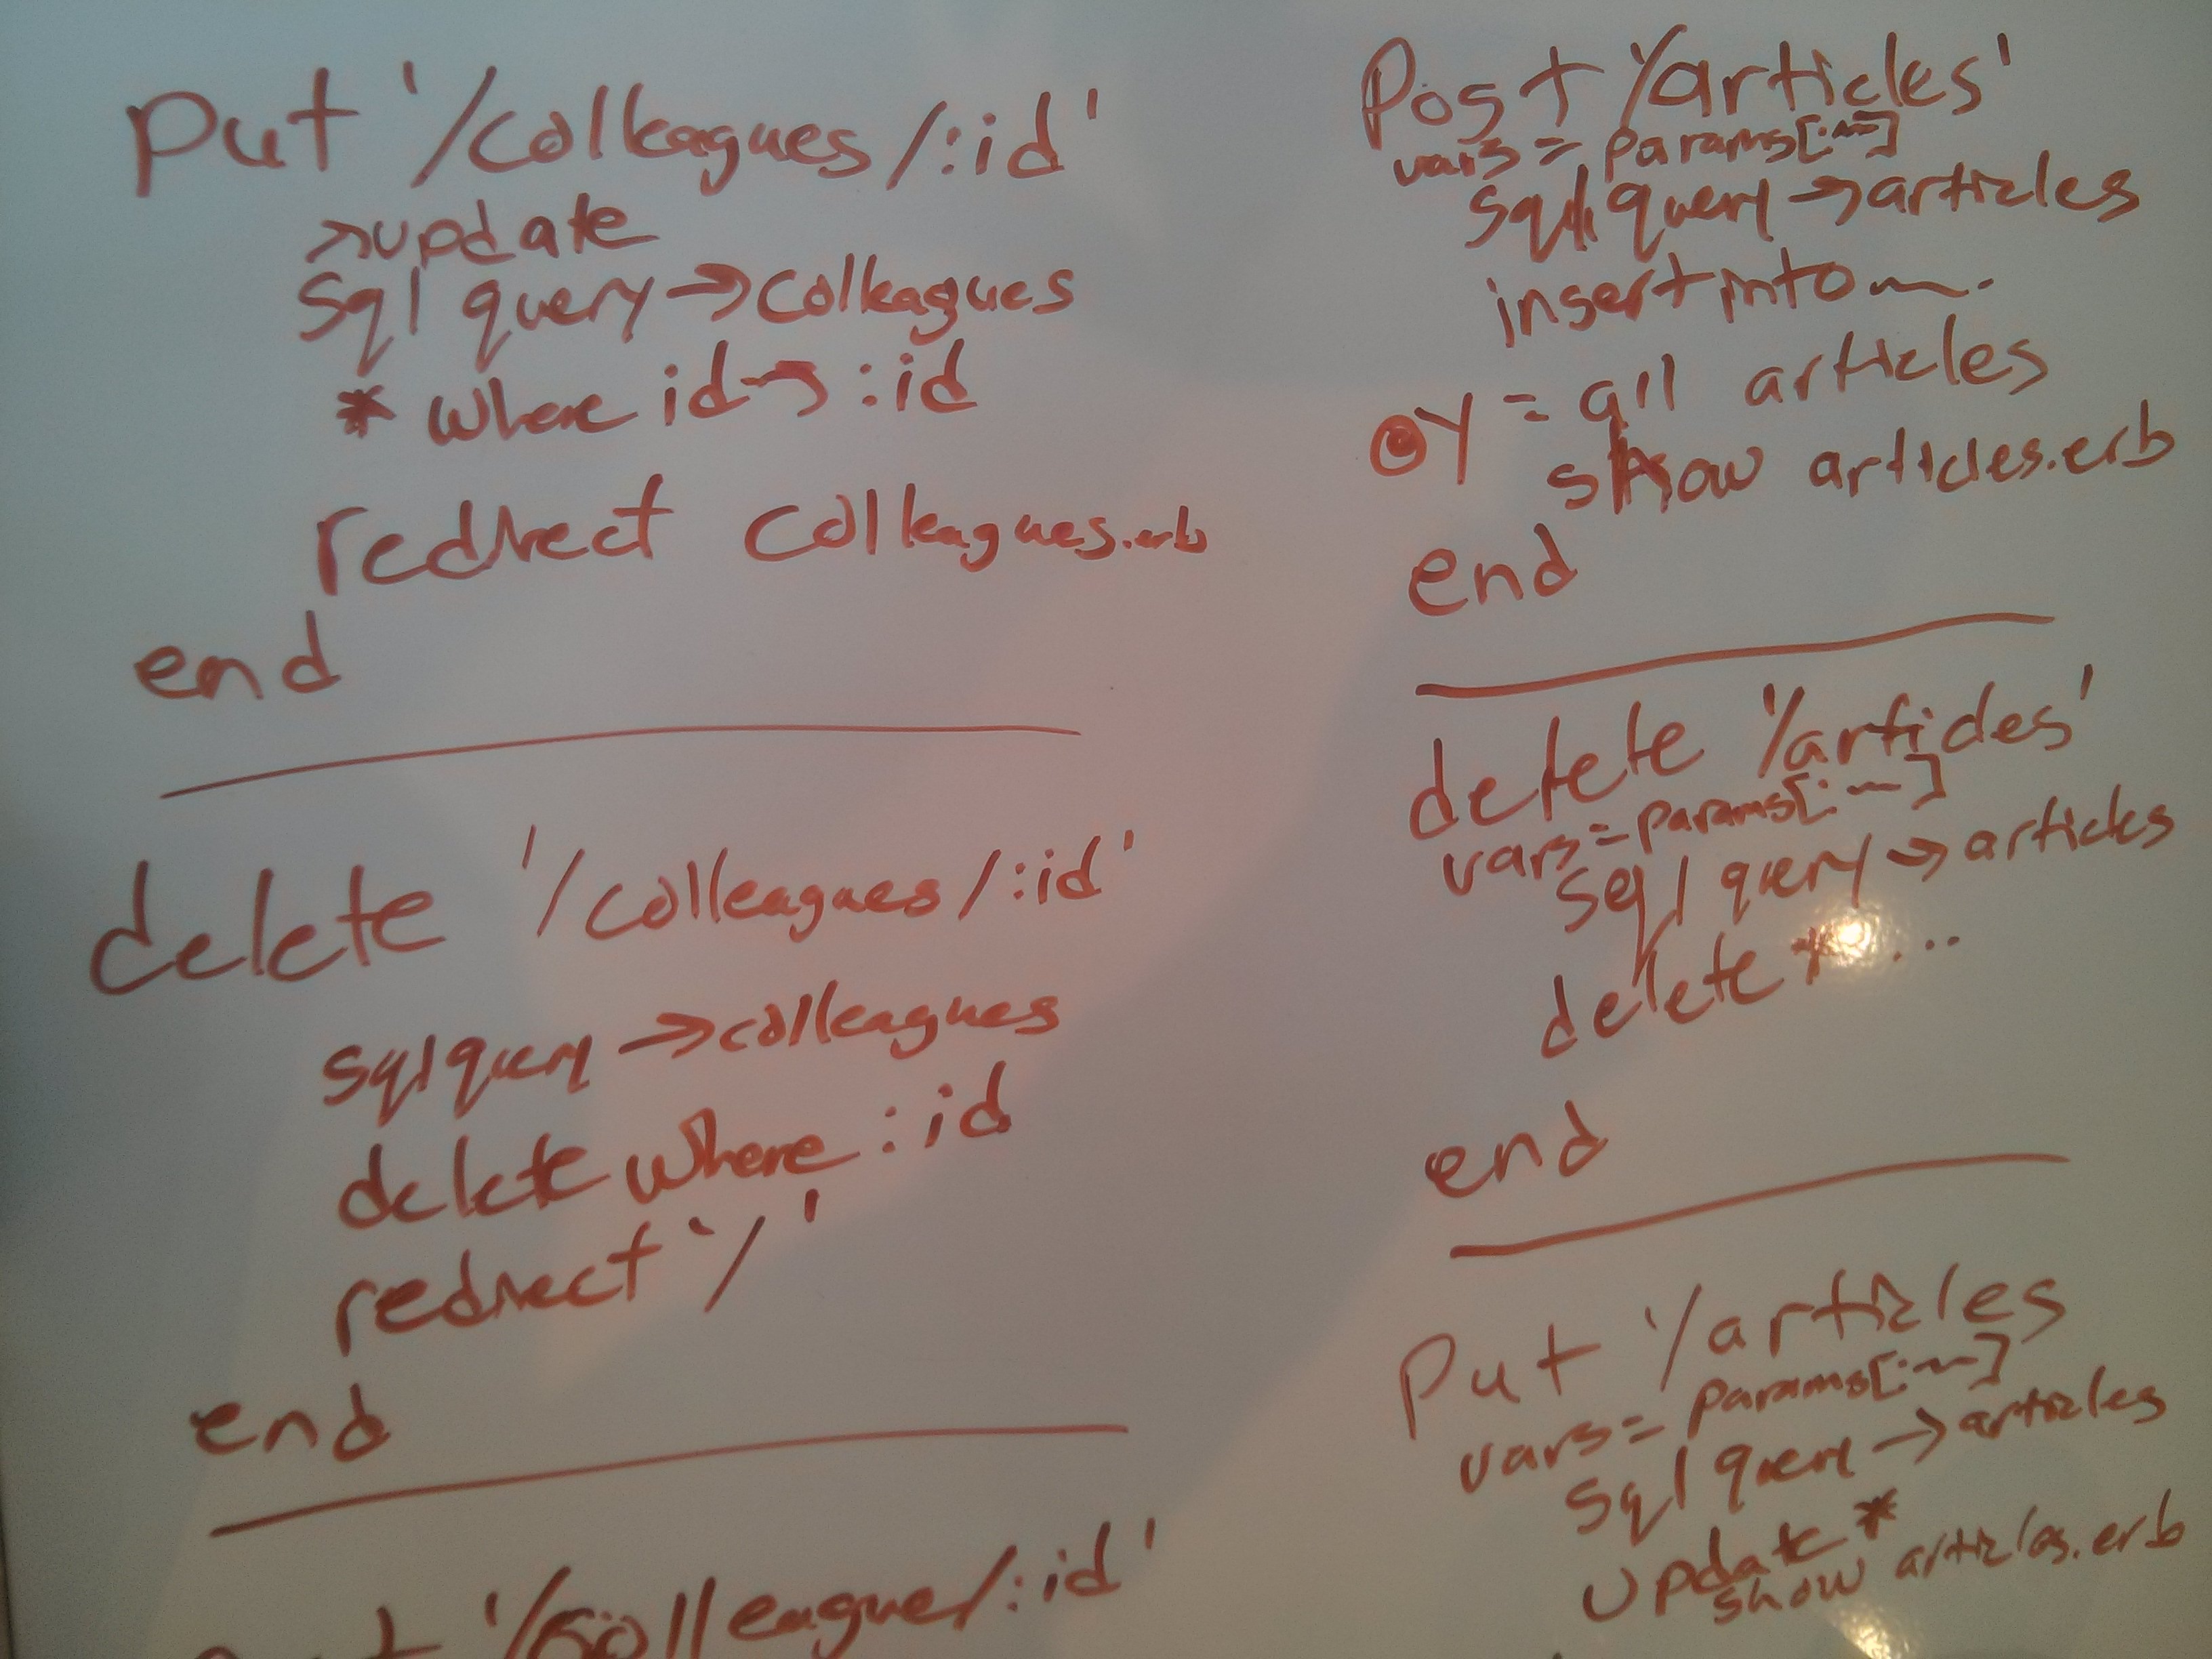 put '/colleagues/:id'
→update
sql query→colleagues
* where id→ :id
redirect colleagues.erb
end
delete '/colleagues/:id'
sql query→colleagues
delete where :id
redirect '/'
end
'/colleague/:id'
Post '/articles'
vars = params[:~]
sql query→articles
insert into ~.
@y = all articles
show articles.erb
end
delete '/articles'
vars = params[:~]
sql query→articles
delete * ...
end
Put '/articles
vars = params[:~]
sql query→articles
update *
show articles.erb